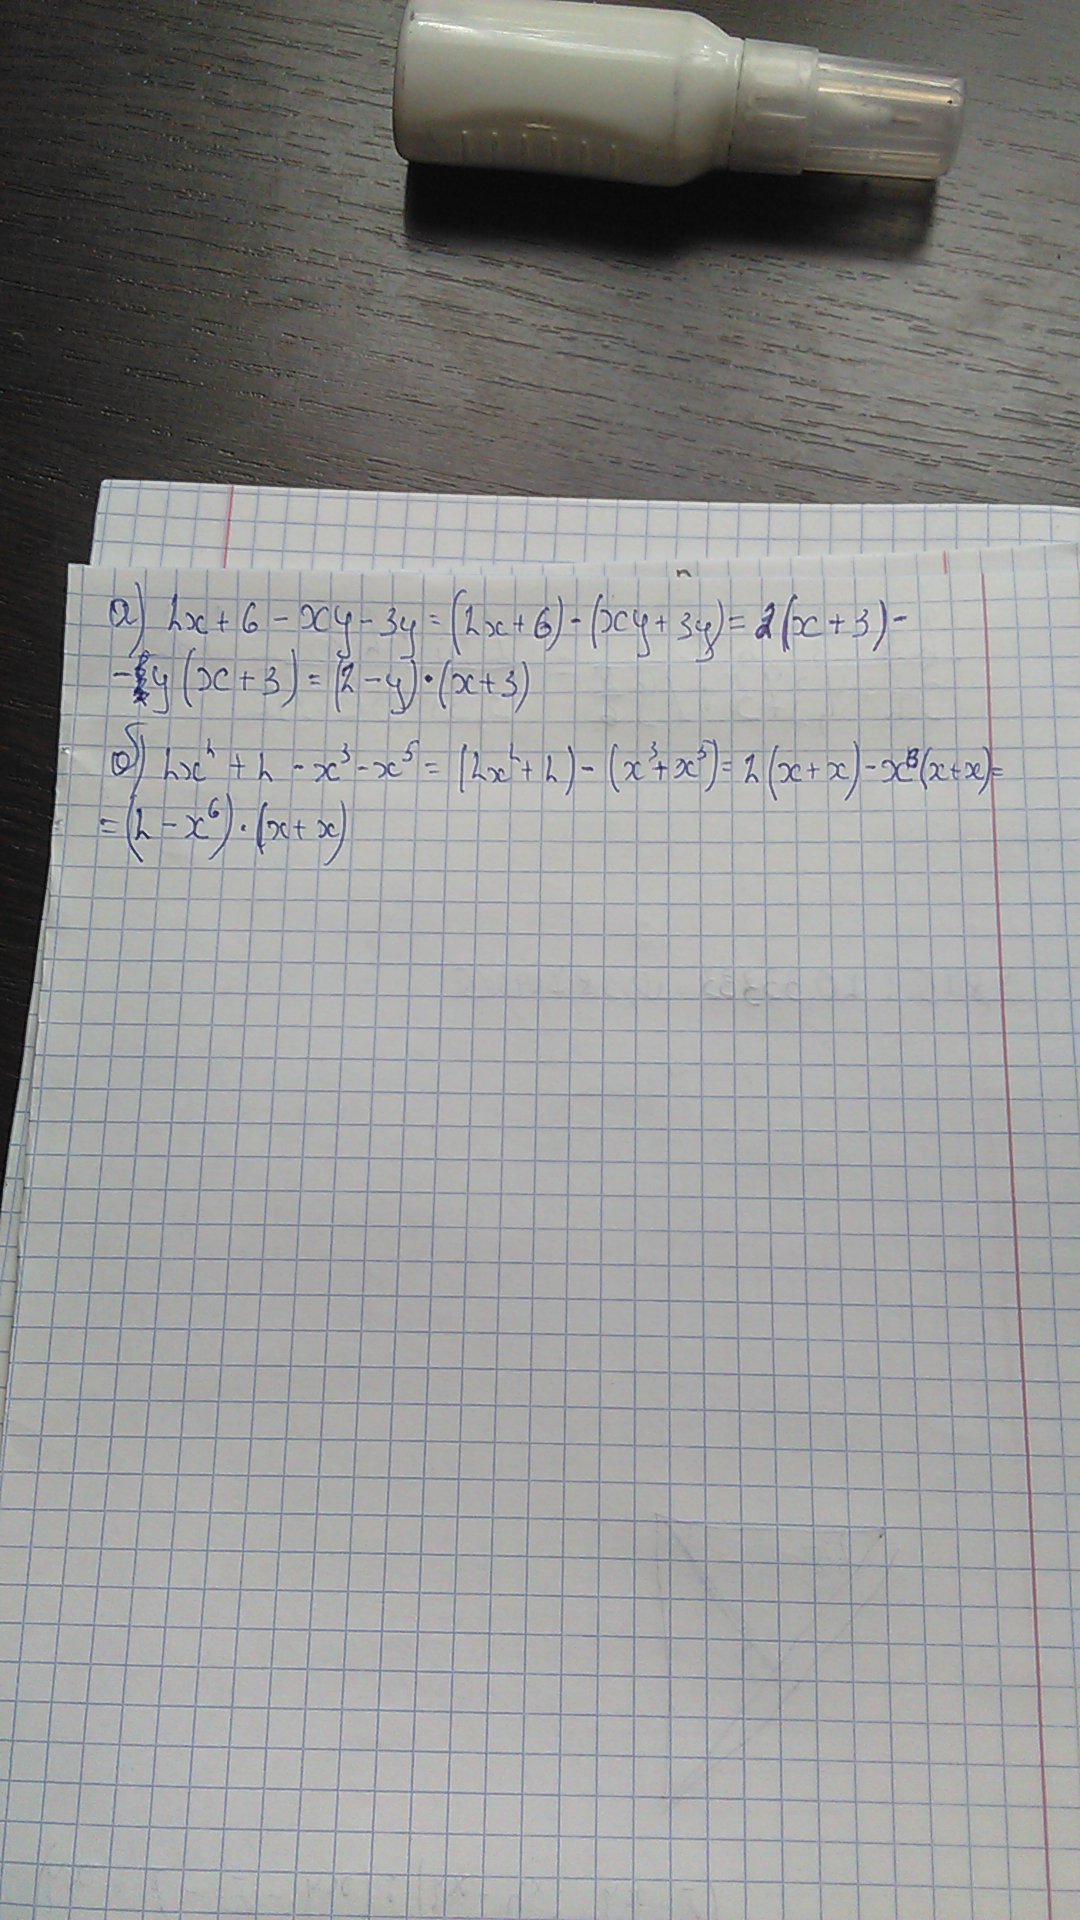 а) 2x + 6 - xy - 3y = (2x + 6) - (xy + 3y) = 2(x + 3) -
- y(x + 3) = (2 - y)·(x + 3)
б) 2x² + 2 - x³ - x⁵ = (2x² + 2) - (x³ + x⁵) = 2(x + x) - x⁸(x + x) =
= (2 - x⁶)·(x + x)